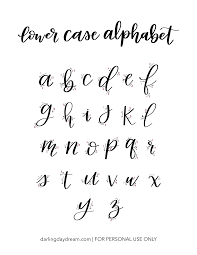 lower case alphabet
a b c d e f
g h i j k l
m n o p q r
s t u v w x
y z
darlingdaydream.com | FOR PERSONAL USE ONLY